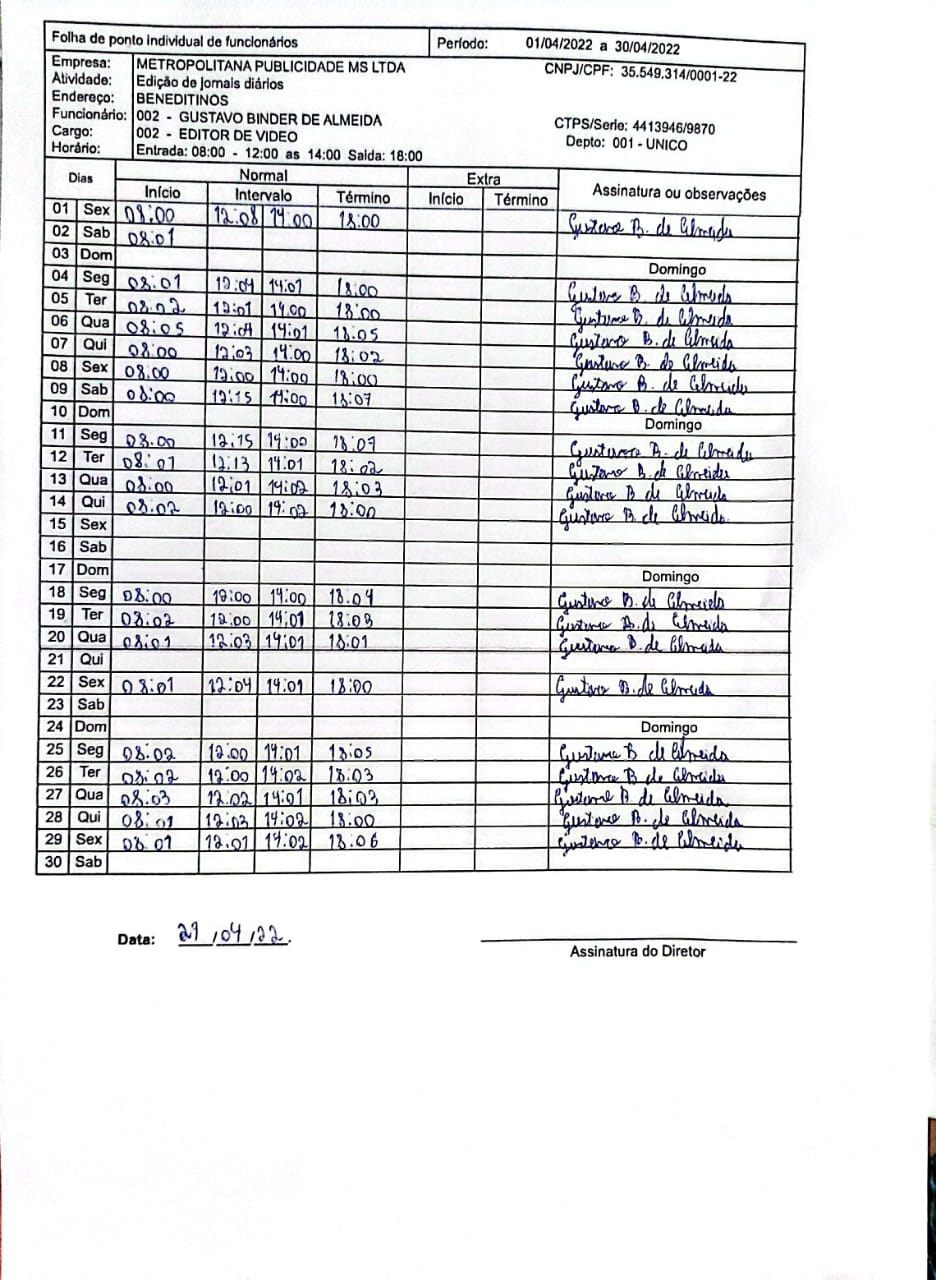 Folha de ponto individual de funcionários Período: 01/04/2022 a 30/04/2022
Empresa: METROPOLITANA PUBLICIDADE MS LTDA CNPJ/CPF: 35.549.314/0001-22
Atividade: Edição de jornais diários
Endereço: BENEDITINOS
Funcionário: 002 - GUSTAVO BINDER DE ALMEIDA CTPS/Serie: 4413946/9870
Cargo: 002 - EDITOR DE VIDEO Depto: 001 - UNICO
Horário: Entrada: 08:00 - 12:00 as 14:00 Saida: 18:00
Dias Normal Extra Assinatura ou observações
Início Intervalo Término Início Término
01 Sex 08:00 12:08 14:00 18:00 Gustavo B. de Almeida
02 Sab 08:01
03 Dom Domingo
04 Seg 08:01 12:04 14:01 18:00 Gustavo B. de Almeida
05 Ter 08:02 12:01 14:00 18:00 Gustavo B. de Almeida
06 Qua 08:05 12:04 14:01 18:05 Gustavo B. de Almeida
07 Qui 08:00 12:03 14:00 18:02 Gustavo B. de Almeida
08 Sex 08:00 12:00 14:00 18:00 Gustavo B. de Almeida
09 Sab 08:00 12:15 14:00 18:07 Gustavo B. de Almeida
10 Dom Domingo
11 Seg 08:00 12:15 14:00 18:07 Gustavo B. de Almeida
12 Ter 08:01 12:13 14:01 18:02 Gustavo B. de Almeida
13 Qua 08:00 12:01 14:02 18:03 Gustavo B de Almeida
14 Qui 08:02 12:00 14:02 18:00 Gustavo B. de Almeida
15 Sex
16 Sab
17 Dom Domingo
18 Seg 08:00 12:00 14:00 18:04 Gustavo B. de Almeida
19 Ter 08:02 12:00 14:01 18:03 Gustavo B. de Almeida
20 Qua 08:01 12:03 14:01 18:01 Gustavo B. de Almeida
21 Qui
22 Sex 08:01 12:04 14:01 18:00 Gustavo B. de Almeida
23 Sab
24 Dom Domingo
25 Seg 08:02 12:00 14:01 18:05 Gustavo B de Almeida
26 Ter 08:02 12:00 14:02 18:03 Gustavo B de Almeida
27 Qua 08:03 12:02 14:01 18:03 Gustavo B. de Almeida
28 Qui 08:01 12:03 14:02 18:00 Gustavo B. de Almeida
29 Sex 08:01 12:01 14:02 18:06 Gustavo B. de Almeida
30 Sab
Data: 29/04/22.
Assinatura do Diretor